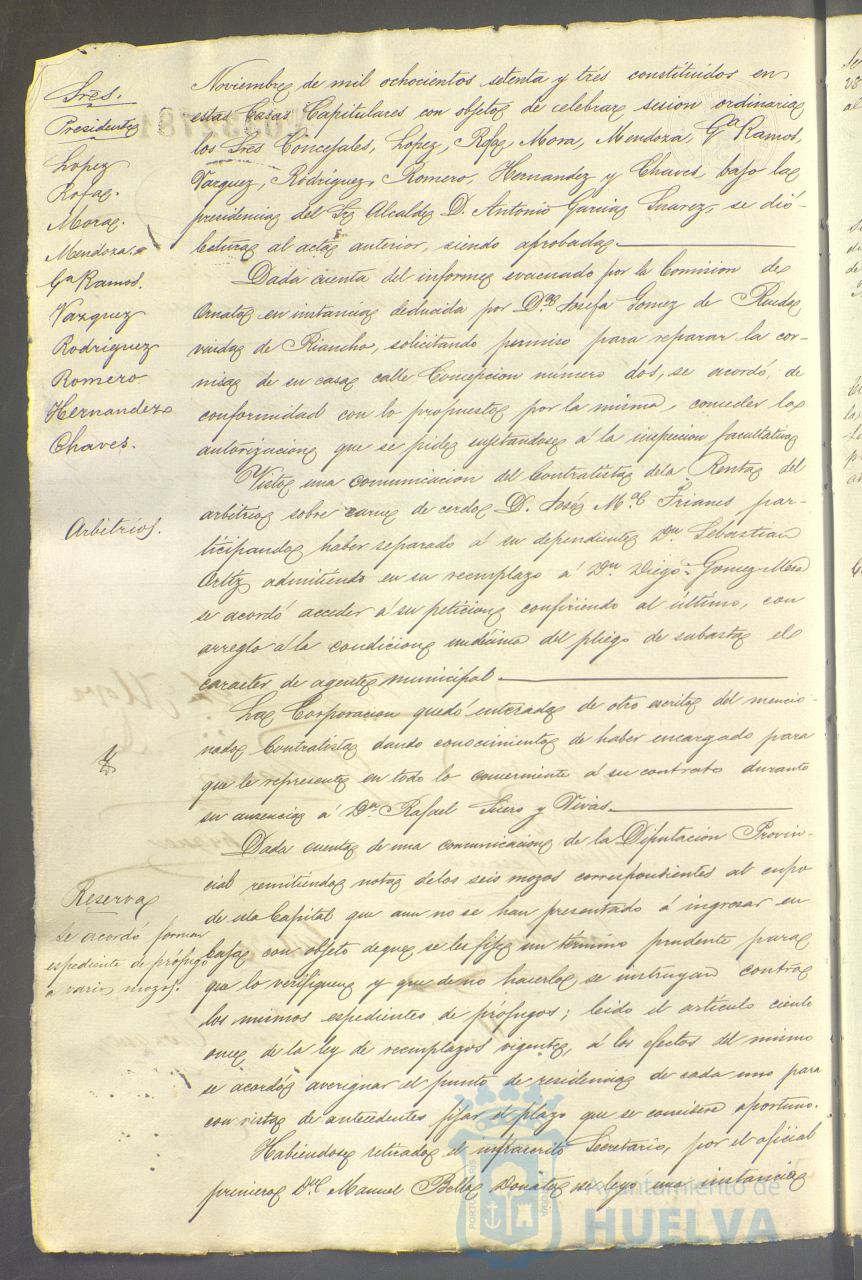 Sres.
Presidente
Lopez
Rofa.
Mora.
Mendoza.
Gª Ramos.
Vazquez
Rodriguez
Romero
Hernandez
Chaves.
Noviembre de mil ochocientos setenta y tres constituidos en
estas Casas Capitulares con objeto de celebrar sesion ordinaria
los Sres Concejales, Lopez, Rofa, Mora, Mendoza, Gª Ramos,
Vazquez, Rodriguez, Romero, Hernandez y Chaves, bajo la
presidencia del Sr Alcalde D. Antonio Garcia Suarez, se dió
lectura al acta anterior, siendo aprobada
Dada cuenta del informe evacuado por la Comision de
Ornato en instancia deducida por Dª Josefa Gomez de Rueda
viuda de Riancho, solicitando permiso para reparar la cor-
nisa de su casa calle Concepcion número dos, se acordó, de
conformidad con lo propuesto por la misma, conceder la
autorizacion que se pide sujetandose á la inspeccion facultativa
Arbitrios.
Vista una comunicacion del Contratista dela Renta del
arbitrio sobre carne de cerdo D. José Mª Frianes par-
ticipando haber separado á su dependiente Dn Sebastian
Ortiz admitiendo en su remplazo á Dn. Diego Gomez Mora
se acordó acceder á su peticion confiriendo al último, con
arreglo á la condicion undécima del pliego de subasta el
caracter de agente municipal
La Corporacion quedó enterada de otro escrito del mencio-
nado Contratista dando conocimiento de haber encargado para
que le represente en todo lo concerniente á su contrato durante
su ausencia á Dn. Rafael Suero y Vivas
Reserva
Se acordó formar
espediente de prófugo
a varios mozos.
Dada cuenta de una comunicacion de la Diputacion Provin-
cial remitiendo nota delos seis mozos correspondientes al cupo
de esta Capital que aun no se han presentado á ingresar en
Caja con objeto deque se les fije un término prudente para
que lo verifiquen y que de no hacerlo, se instruyan contra
los mismos espedientes de prófugos; leido el artículo ciento
once de la ley de reemplazos vigente, á los efectos del mismo
se acordó averiguar el punto de residencia de cada uno para
con vista de antecedentes fijar el plazo que se considere oportuno.
Habiendose retirado el infrascrito Secretario, por el oficial
primero Dn Manuel Bella Donate se leyó una instancia
Ayuntamiento de
HUELVA